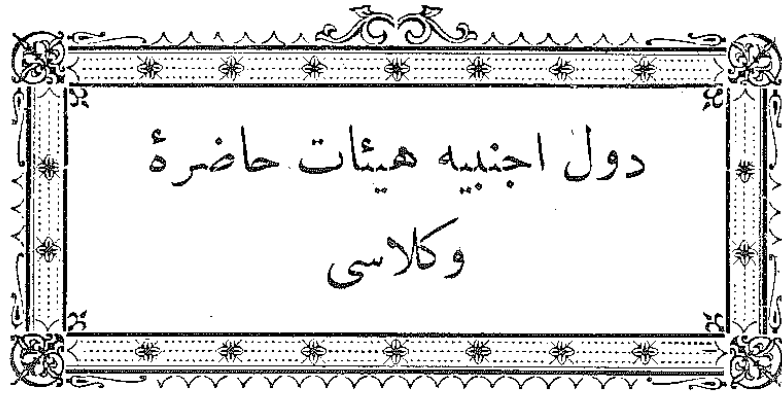 دول اجنبیه هیئات حاضرۀ
وکلاسی